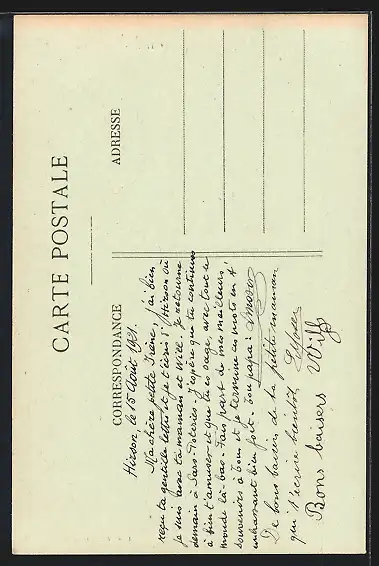 CARTE POSTALE
CORRESPONDANCE
ADRESSE
Hirson, le 15 Août 1921.
Ma chère petite Irène, j'ai bien
reçu ta gentille lettre et je t'écris d'Hirson où
je suis avec ta maman et Will. Je retourne
demain à Sars-Poteries. J'espère que tu continues
à bien t'amuser et que tu es sage, avec tout le
monde là-bas. Fais part de mes meilleurs
souvenirs à tous et je termine ces mots en t'
embrassant bien fort. Ton papa:
De bons baisers de ta petite maman
qui t'écrira bientôt,
Bons baisers Will